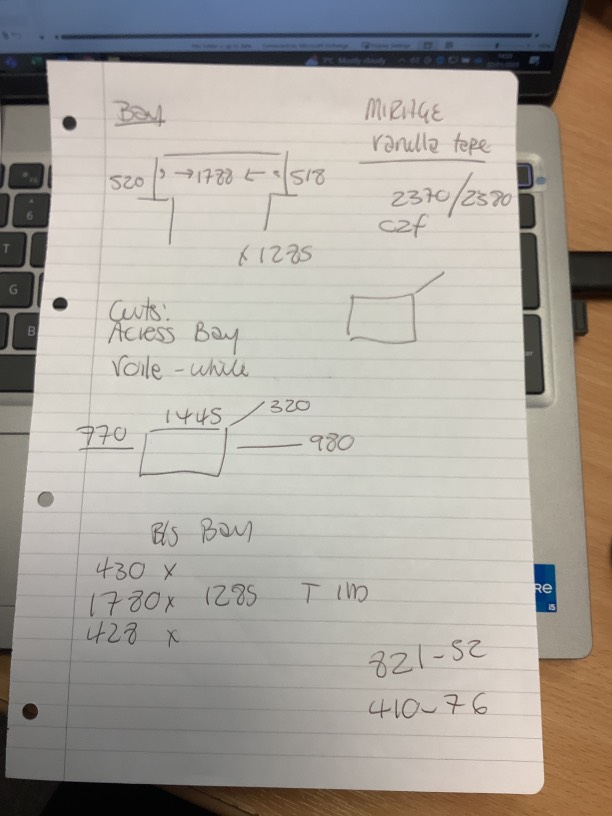 Bay
MIRAGE
vanilla tape
520 → 1788 ← 518
2370/2380
czf
x 1285
Cuts:
Across Bay
Voile - while
1445 320
770 980
B/S Bay
430 x
1780 x 1285 T IM
428 x
821-52
410-76
PC Mostly cloudy
6
T
G
B
i5